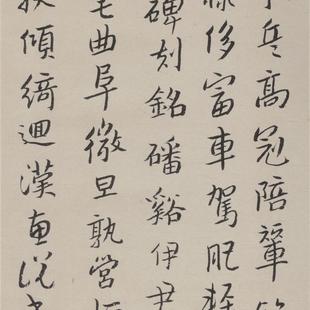 兵高冠陪輦
祿侈富車駕肥輕
碑刻銘磻谿伊尹
宅曲阜微旦孰營
扶傾綺迴漢惠說